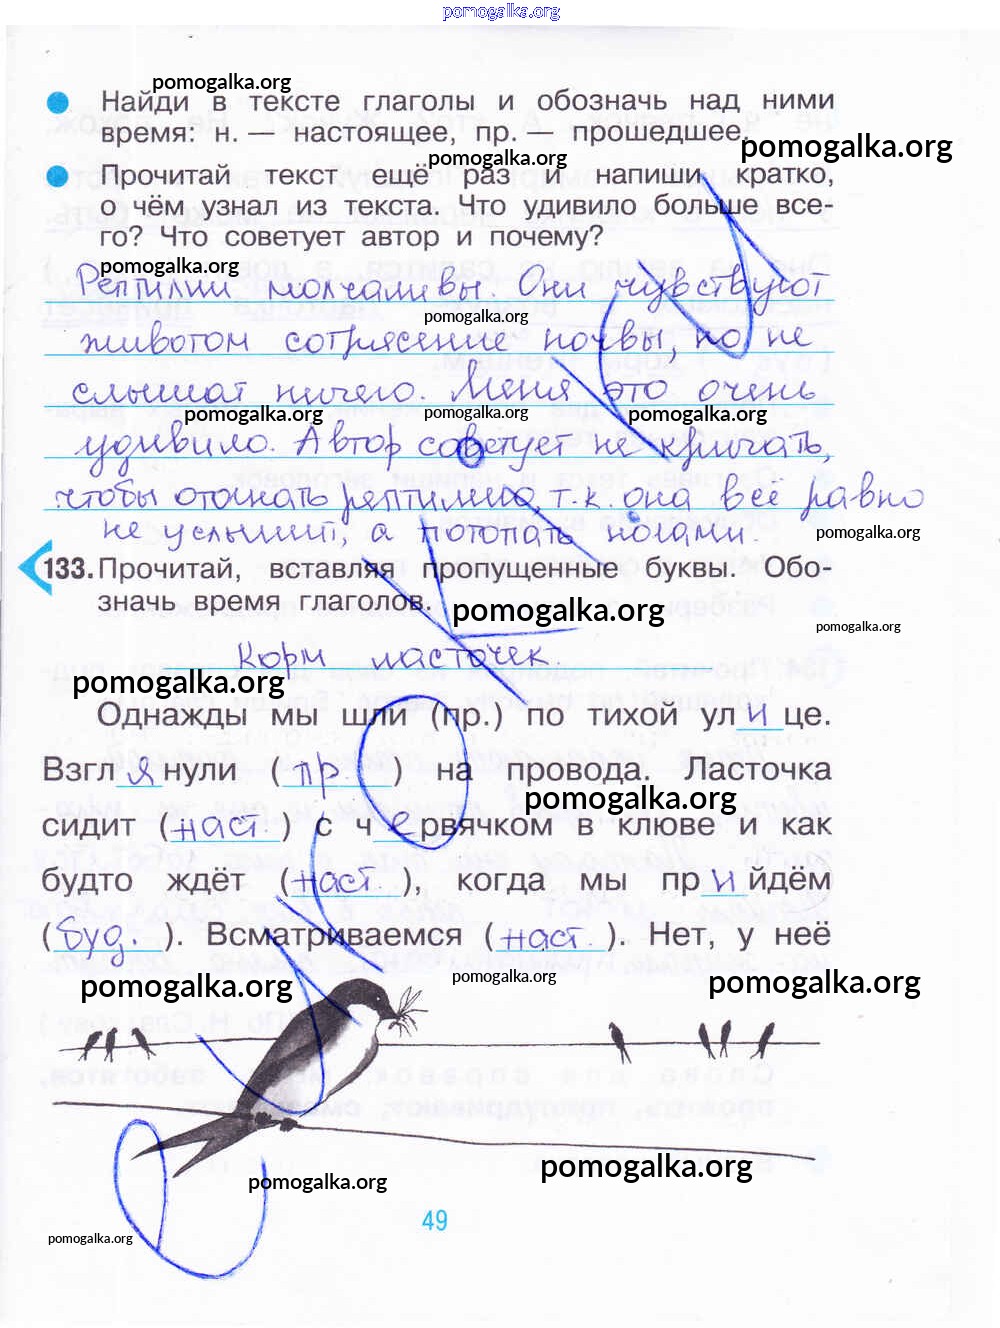 pomogalka.org
pomogalka.org
Найди в тексте глаголы и обозначь над ними
время: н. — настоящее, пр. — прошедшее.
pomogalka.org pomogalka.org
Прочитай текст ещё раз и напиши кратко,
о чём узнал из текста. Что удивило больше все-
го? Что советует автор и почему?
pomogalka.org
Рептилии молчаливы. Они чувствуют
pomogalka.org
животом сотрясение почвы, но не
слышат ничего. Меня это очень
pomogalka.org pomogalka.org pomogalka.org
удивило. Автор советует не кричать,
чтобы отогнать рептилию, т.к. она все равно
не услышит, а потопать ногами.
pomogalka.org
133. Прочитай, вставляя пропущенные буквы. Обо-
значь время глаголов.
pomogalka.org
pomogalka.org
Корм ласточек
pomogalka.org
Однажды мы шли (пр.) по тихой улице.
Взглянули (пр.) на провода. Ласточка
pomogalka.org
сидит (наст.) с червячком в клюве и как
будто ждёт (наст.), когда мы прийдём
(буд.). Всматриваемся (наст.). Нет, у неё
pomogalka.org pomogalka.org pomogalka.org
pomogalka.org
pomogalka.org
49
pomogalka.org